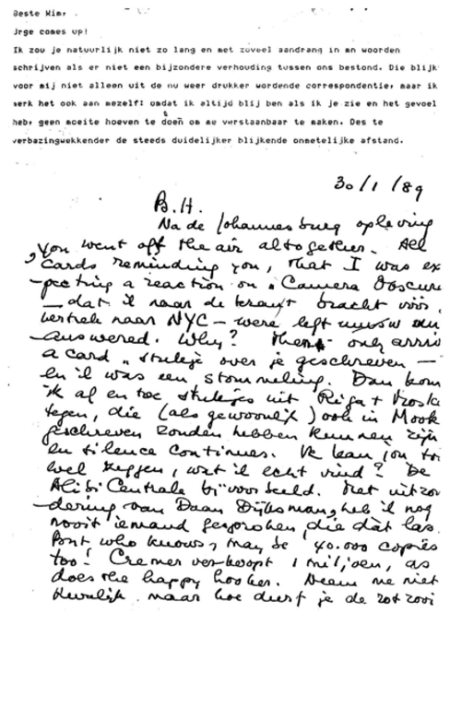 Beste Wim,
Jrge comes up!
Ik zou je natuurlijk niet zo lang en met zoveel aandrang in mn woorden
schrijven als er niet een bijzondere verhouding tussen ons bestond. Die blijk
voor mij niet alleen uit de nu weer drukker wordende correspondentie, maar ik
merk het ook aan mezelf! omdat ik altijd blij ben als ik je zie en het gevoel
heb, geen moeite hoeven te doen om me verstaanbaar te maken. Des te
verbazingwekkender de steeds duidelijker blijkende onmetelijke afstand.
30/1/89
B.H.
Na de Johannesburg opleving
you went off the air altogether. All
cards reminding you, that I was ex
pecting a reaction on "Camera Obscura
- dat ik naar de krant bracht vóór
vertrek naar NYC - were left
answered. Why? Then only
a card " stukje over je geschreven -
en ik was een stommeling. Dan kom
ik af en toe stukjes uit Riga +
tegen, die (als gewoonlijk) ook in Mook
geschreven zouden hebben kunnen zijn
en silence continues. Ik kan jou
wel zeggen, wat ik echt vind? De
Alibi Centrale bijvoorbeeld. Met uitzon
dering van Daan Dijksman heb ik nog
nooit iemand gesproken, die dat las.
But who knows, may be 40.000 copies
too! Cremer verkoopt 1 miljoen, as
does the happy hooker. Neem me niet
kwalijk maar hoe durf je de zotzooi